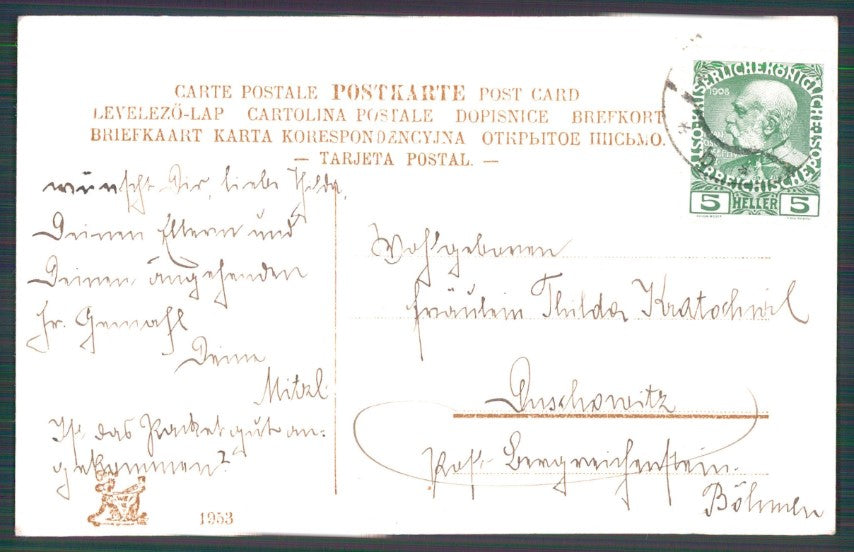 CARTE POSTALE POSTKARTE POST CARD
LEVELEZŐ-LAP CARTOLINA POSTALE DOPISNICE BREFKORT
BRIEFKAART KARTA KORESPONDENCYJNA ОТКРЫТОЕ ПИСЬМО.
— TARJETA POSTAL. —
1908
5 HELLER 5
wünscht Dir, liebe Thilda,
Deinen Eltern und
Deinem angehenden
Hr. Gemahl
Deine
Mitzl
Ist das Packet gut an-
gekommen?
1953
Wohlgeboren
Fräulein Thilda Kratochwil
Post Bergreichenstein.
Böhmen